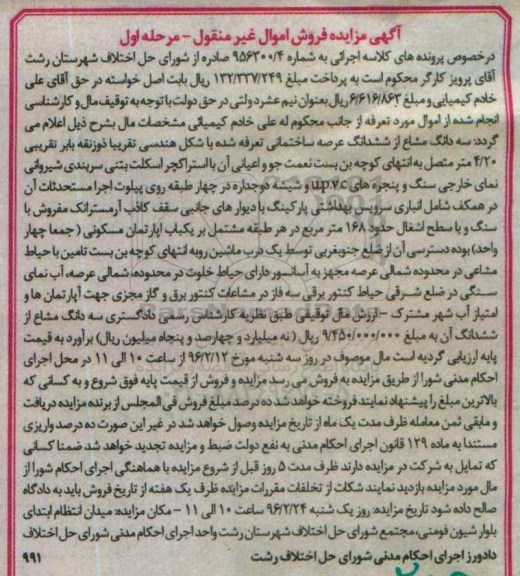 آگهی مزایده فروش اموال غیر منقول - مرحله اول
درخصوص پرونده های کلاسه اجرائی به شماره ۹۵۶۳۰۰/۴ صادره از شورای حل اختلاف شهرستان رشت
آقای پرویز کارگر محکوم است به پرداخت مبلغ ۱۳۲/۳۳۷/۲۴۹ ریال بابت اصل خواسته در حق آقای علی
خادم کیمیایی و مبلغ ۶/۶۱۶/۸۶۳ ریال بعنوان نیم عشر دولتی در حق دولت با توجه به توقیف مال و کارشناسی
انجام شده از اموال مورد تعرفه از جانب محکوم له علی خادم کیمیائی مشخصات مال بشرح ذیل اعلام می
گردد: سه دانگ مشاع از ششدانگ عرصه ساختمانی تعرفه شده با شکل هندسی تقریبا ذوزنقه بابر تقریبی
۴/۲۰ متر متصل به انتهای کوچه بن بست نعمت جو و اعیانی آن با استراکچر اسکلت بتنی سربندی شیروانی
نمای خارجی سنگ و پنجره های u.p.v.c و شیشه دوجداره در چهار طبقه روی پیلوت اجرا مستحدثات آن
در همکف شامل انباری سرویس بهداشتی پارکینگ با دیوار های جانبی سقف کاذب آرمسترانک مفروش با
سنگ و با سطح اشغال حدود ۱۶۸ متر مربع در هر طبقه مشتمل بر یکباب اپارتمان مسکونی ( جمعا چهار
واحد) بوده دسترسی آن از ضلع جنوبغربی توسط یک درب ماشین رو به انتهای کوچه بن بست تامین با حیاط
مشاعی در محدوده شمالی عرصه مجهز به آسانسور دارای حیاط خلوت در محدوده، شمالی عرصه، آب نمای
سنگی در ضلع شرقی حیاط کنتور برقی سه فاز در مشاعات کنتور برق و گاز مجزی جهت آپارتمان ها و
امتیاز آب شهر مشترک - ارزش مال توقیفی طبق نظریه کارشناس رسمی دادگستری سه دانگ مشاع از
ششدانگ آن به مبلغ ۹/۴۵۰/۰۰۰/۰۰۰ ریال (نه میلیارد و چهارصد و پنجاه میلیون ریال) برآورد به قیمت
پایه ارزیابی گردیه است مال موصوف در روز سه شنبه مورخ ۹۶/۲/۱۲ از ساعت ۱۰ الی ۱۱ در محل اجرای
احکام مدنی شورا از طریق مزایده به فروش می رسد مزایده و فروش از قیمت پایه فوق شروع و به کسانی که
بالاترین مبلغ را پیشنهاد نمایند فروخته خواهد شد ده درصد مبلغ فروش فی المجلس از برنده مزایده دریافت
و مابقی ثمن معامله ظرف مدت یک ماه از تاریخ مزایده وصول خواهد شد در غیر این صورت ده درصد واریزی
مستندا به ماده ۱۲۹ قانون اجرای احکام مدنی به نفع دولت ضبط و مزایده تجدید خواهد شد ضمنا کسانی
که تمایل به شرکت در مزایده دارند ظرف مدت ۵ روز قبل از شروع مزایده با هماهنگی اجرای احکام شورا از
مال مورد مزایده بازدید نمایند شکات از تخلفات مقررات مزایده ظرف یک هفته از تاریخ فروش باید به دادگاه
صالح داده شود تاریخ مزایده: روز یک شنبه ۹۶/۲/۲۴ ساعت ۱۰ الی ۱۱ - مکان مزایده: میدان انتظام ابتدای
بلوار شیون فومنی، مجتمع شورای حل اختلاف شهرستان رشت واحد اجرای احکام مدنی شورای حل اختلاف
دادورز اجرای احکام مدنی شورای حل اختلاف رشت ۹۹۱